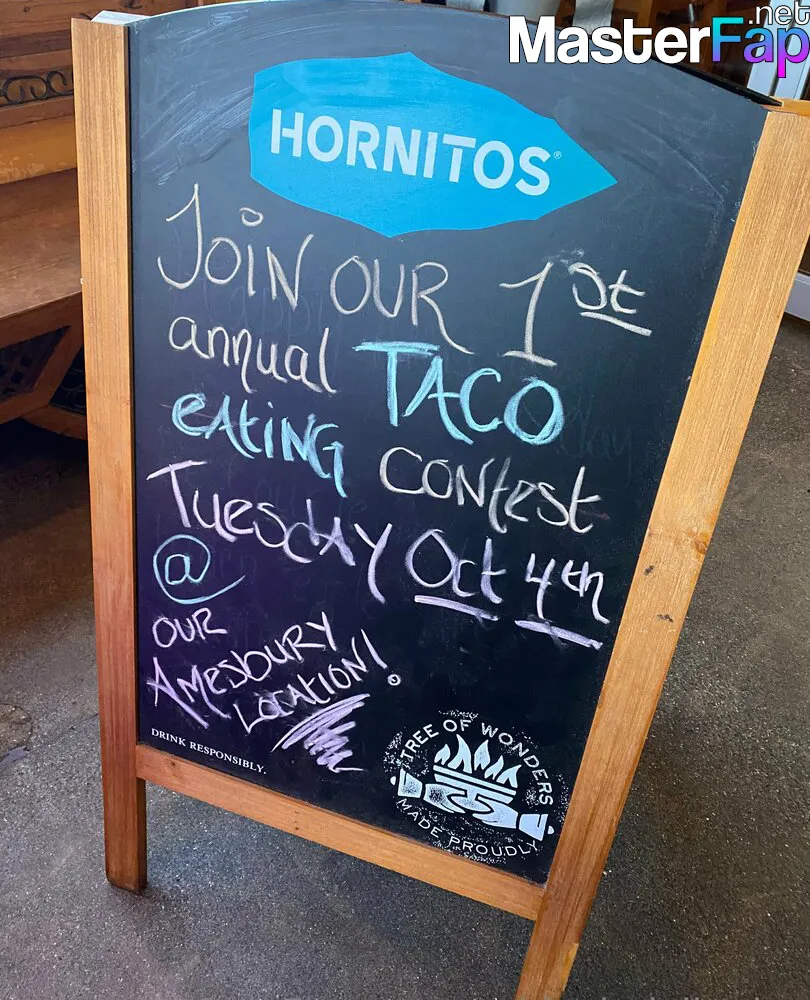 .net
MasterFap
HORNITOS®
JOIN OUR 1st
annual TACO
eATING CONTEST
TUESDAY Oct 4th
@
OUR
AMESBURY
LOCATION!
DRINK RESPONSIBLY.
TREE OF WONDERS
MADE PROUDLY